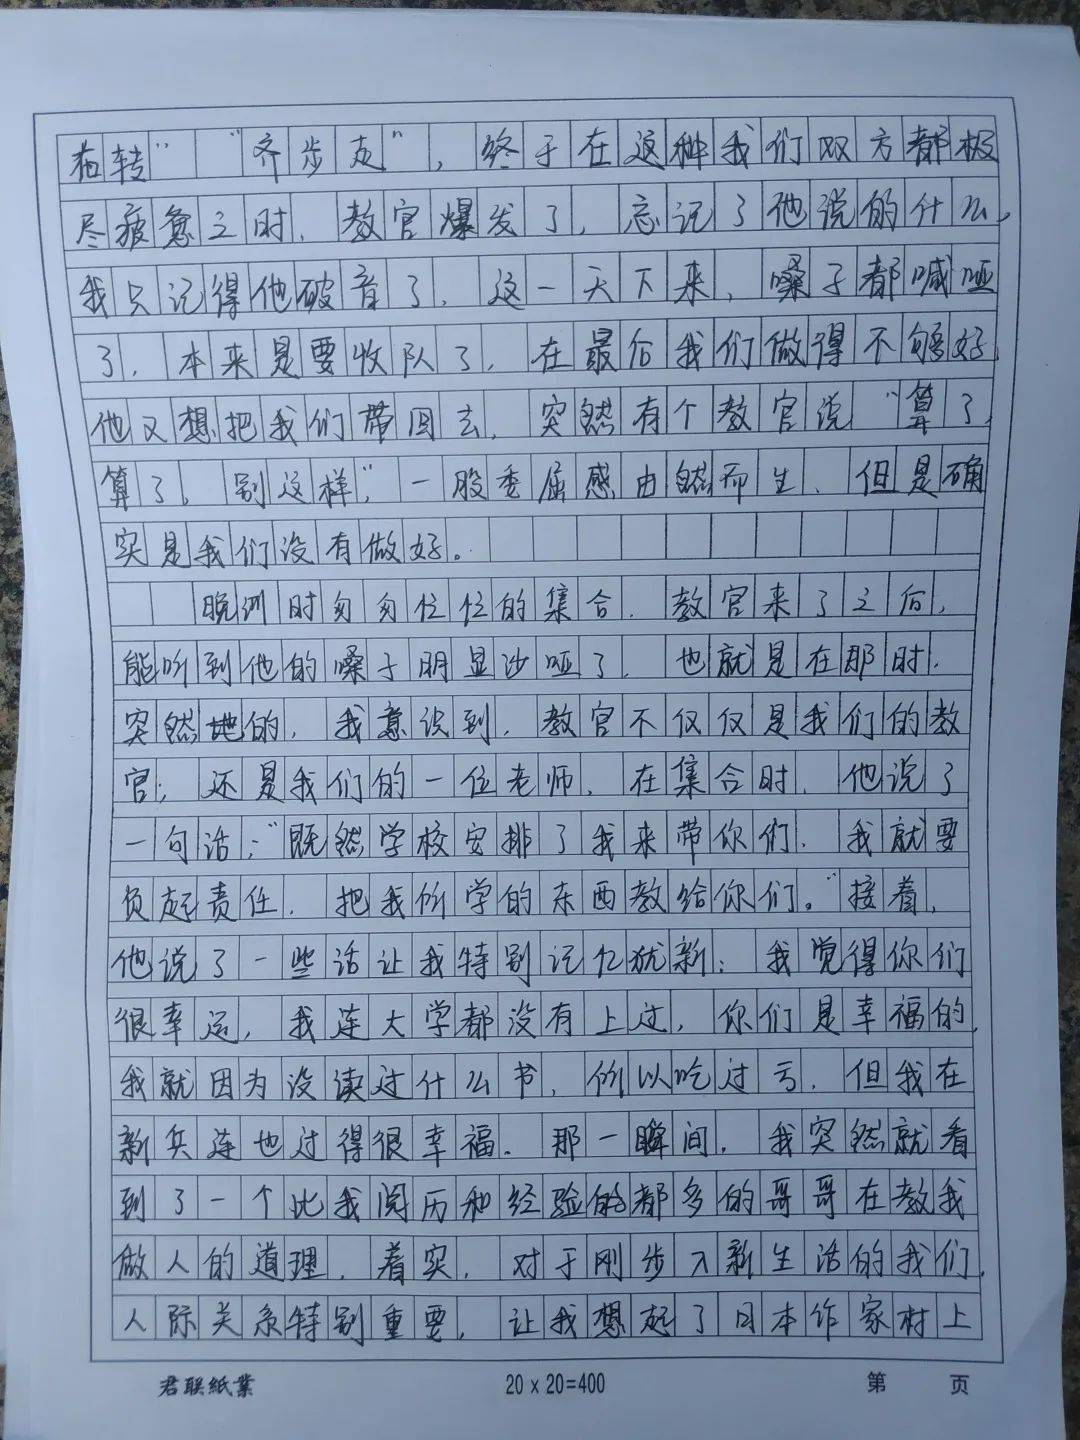 右转” “齐步走”，终于在这种我们双方都极
尽疲惫之时，教官爆发了，忘记了他说的什么，
我只记得他破音了，这一天下来，嗓子都喊哑
了，本来是要收队了，在最后我们做得不够好
他又想把我们带回去，突然有个教官说“算了，
算了，别这样，”一股委屈感由然而生，但是确
实是我们没有做好。
晚训时匆匆忙忙的集合，教官来了之后，
能听到他的嗓子明显沙哑了，也就是在那时，
突然地的，我意识到，教官不仅仅是我们的教
官；还是我们的一位老师，在集合时，他说了
一句话：“既然学校安排了我来带你们，我就要
负起责任，把我所学的东西教给你们。”接着，
他说了一些话让我特别记忆犹新：我觉得你们
很幸运，我连大学都没有上过，你们是幸福的，
我就因为没读过什么书，所以吃过亏，但我在
新兵连也过得很幸福。那一瞬间，我突然就看
到了一个比我阅历和经验的都多的哥哥在教我
做人的道理，着实，对于刚步入新生活的我们，
人际关系特别重要，让我想起了日本作家村上
君联紙業 20×20=400 第 页